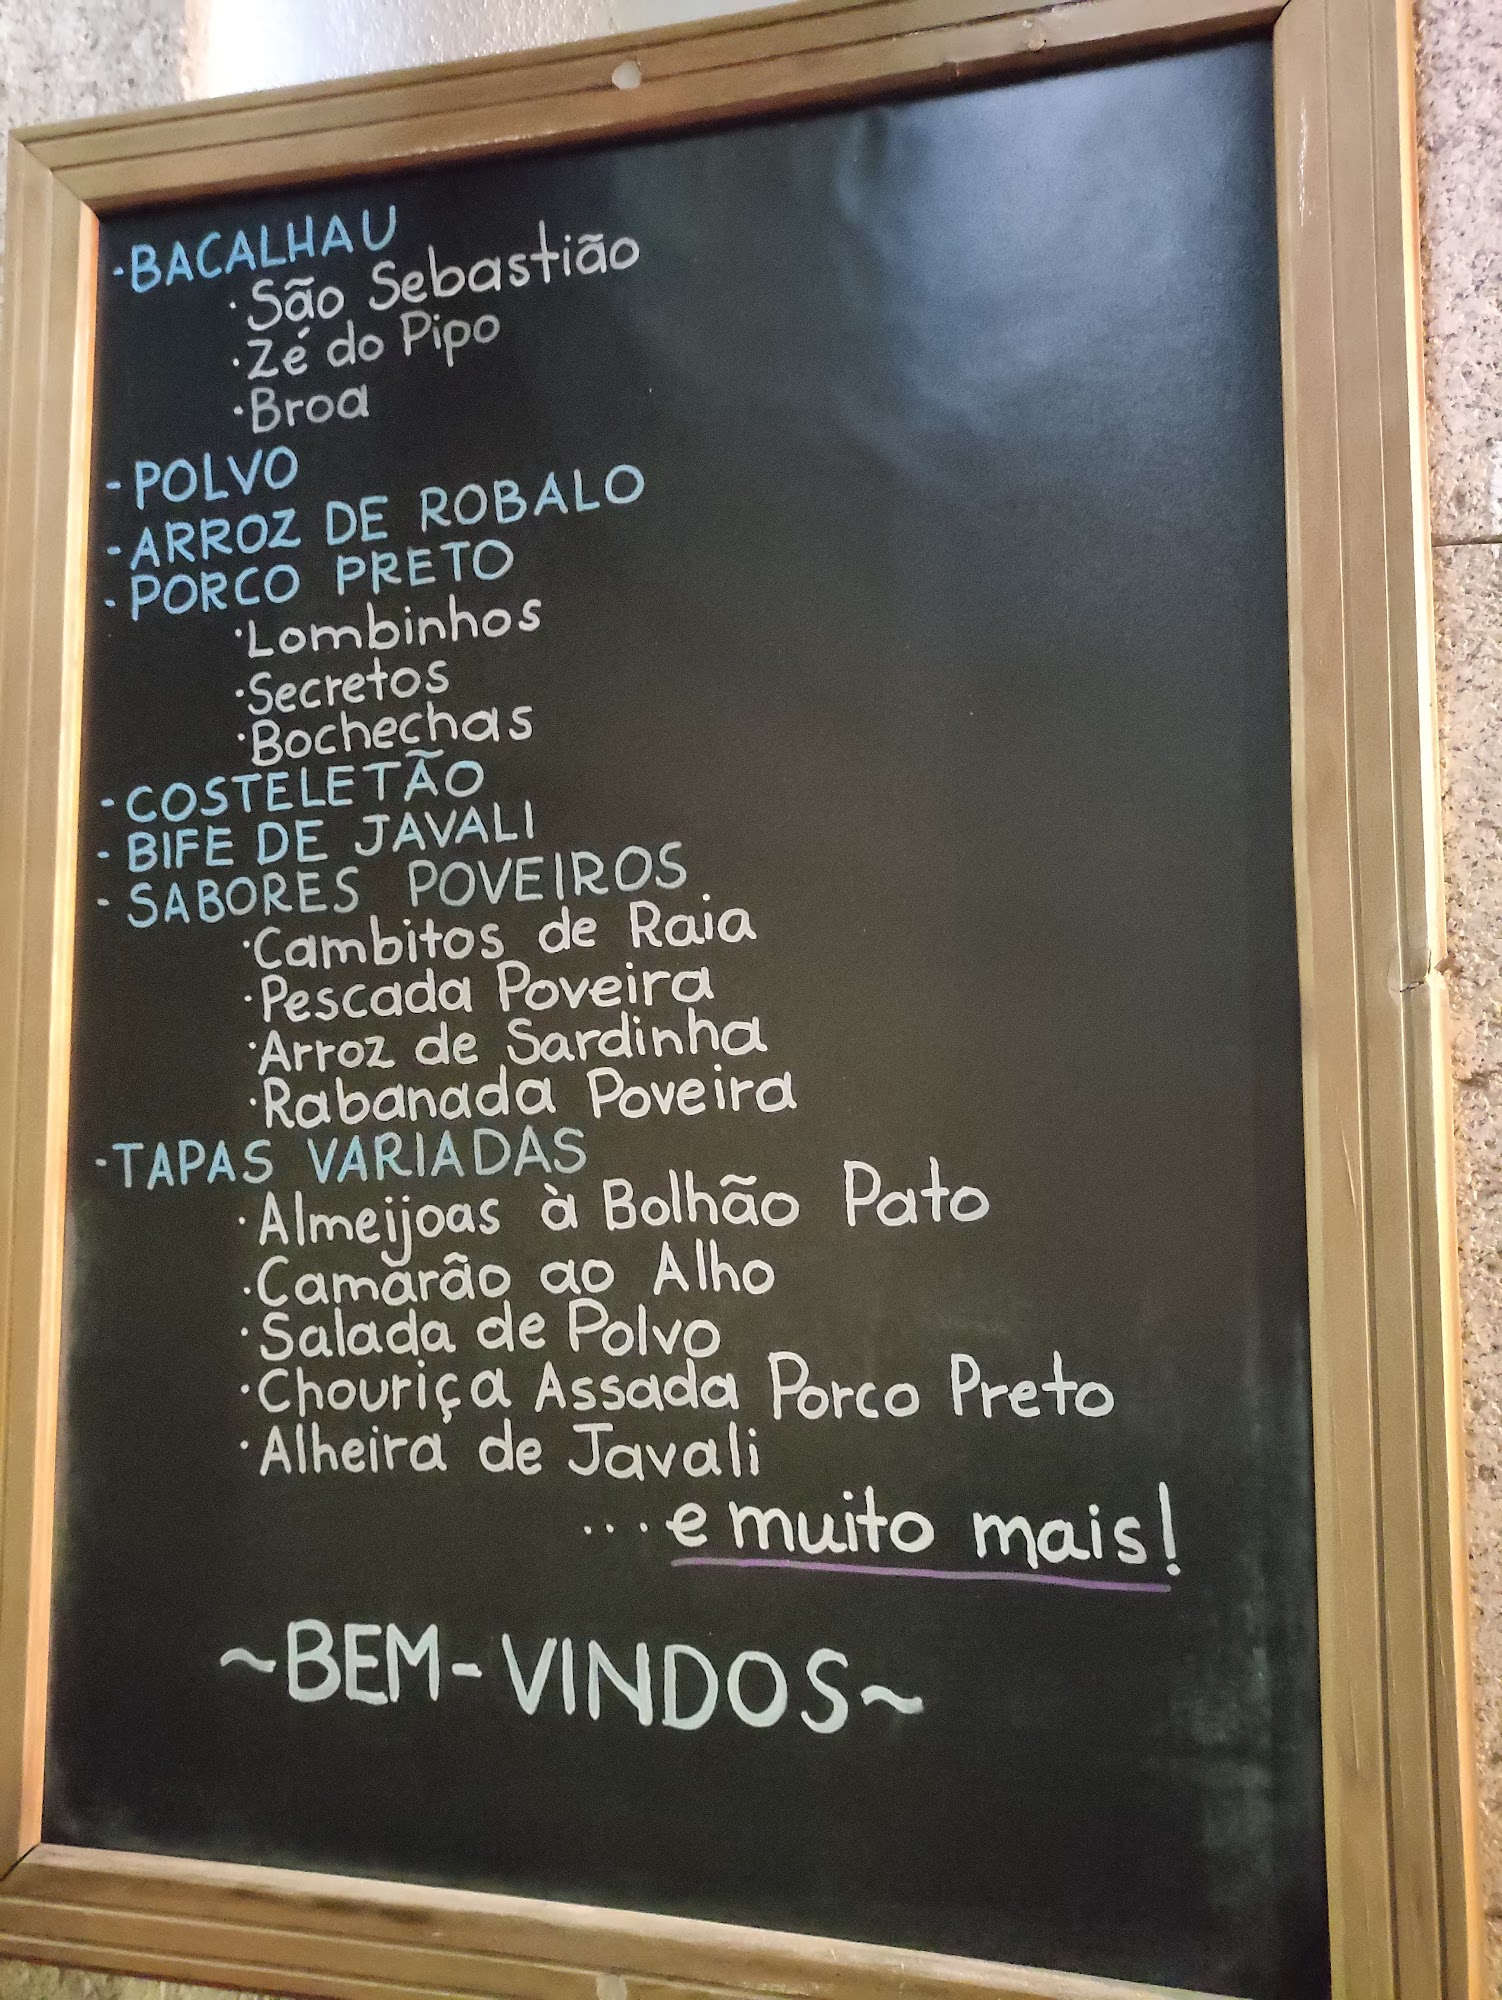 -BACALHAU
·São Sebastião
·Zé do Pipo
·Broa
-POLVO
-ARROZ DE ROBALO
-PORCO PRETO
·Lombinhos
·Secretos
·Bochechas
-COSTELETÃO
-BIFE DE JAVALI
-SABORES POVEIROS
·Cambitos de Raia
·Pescada Poveira
·Arroz de Sardinha
·Rabanada Poveira
-TAPAS VARIADAS
·Almeijoas à Bolhão Pato
·Camarão ao Alho
·Salada de Polvo
·Chouriça Assada Porco Preto
·Alheira de Javali
...e muito mais!
~BEM-VINDOS~